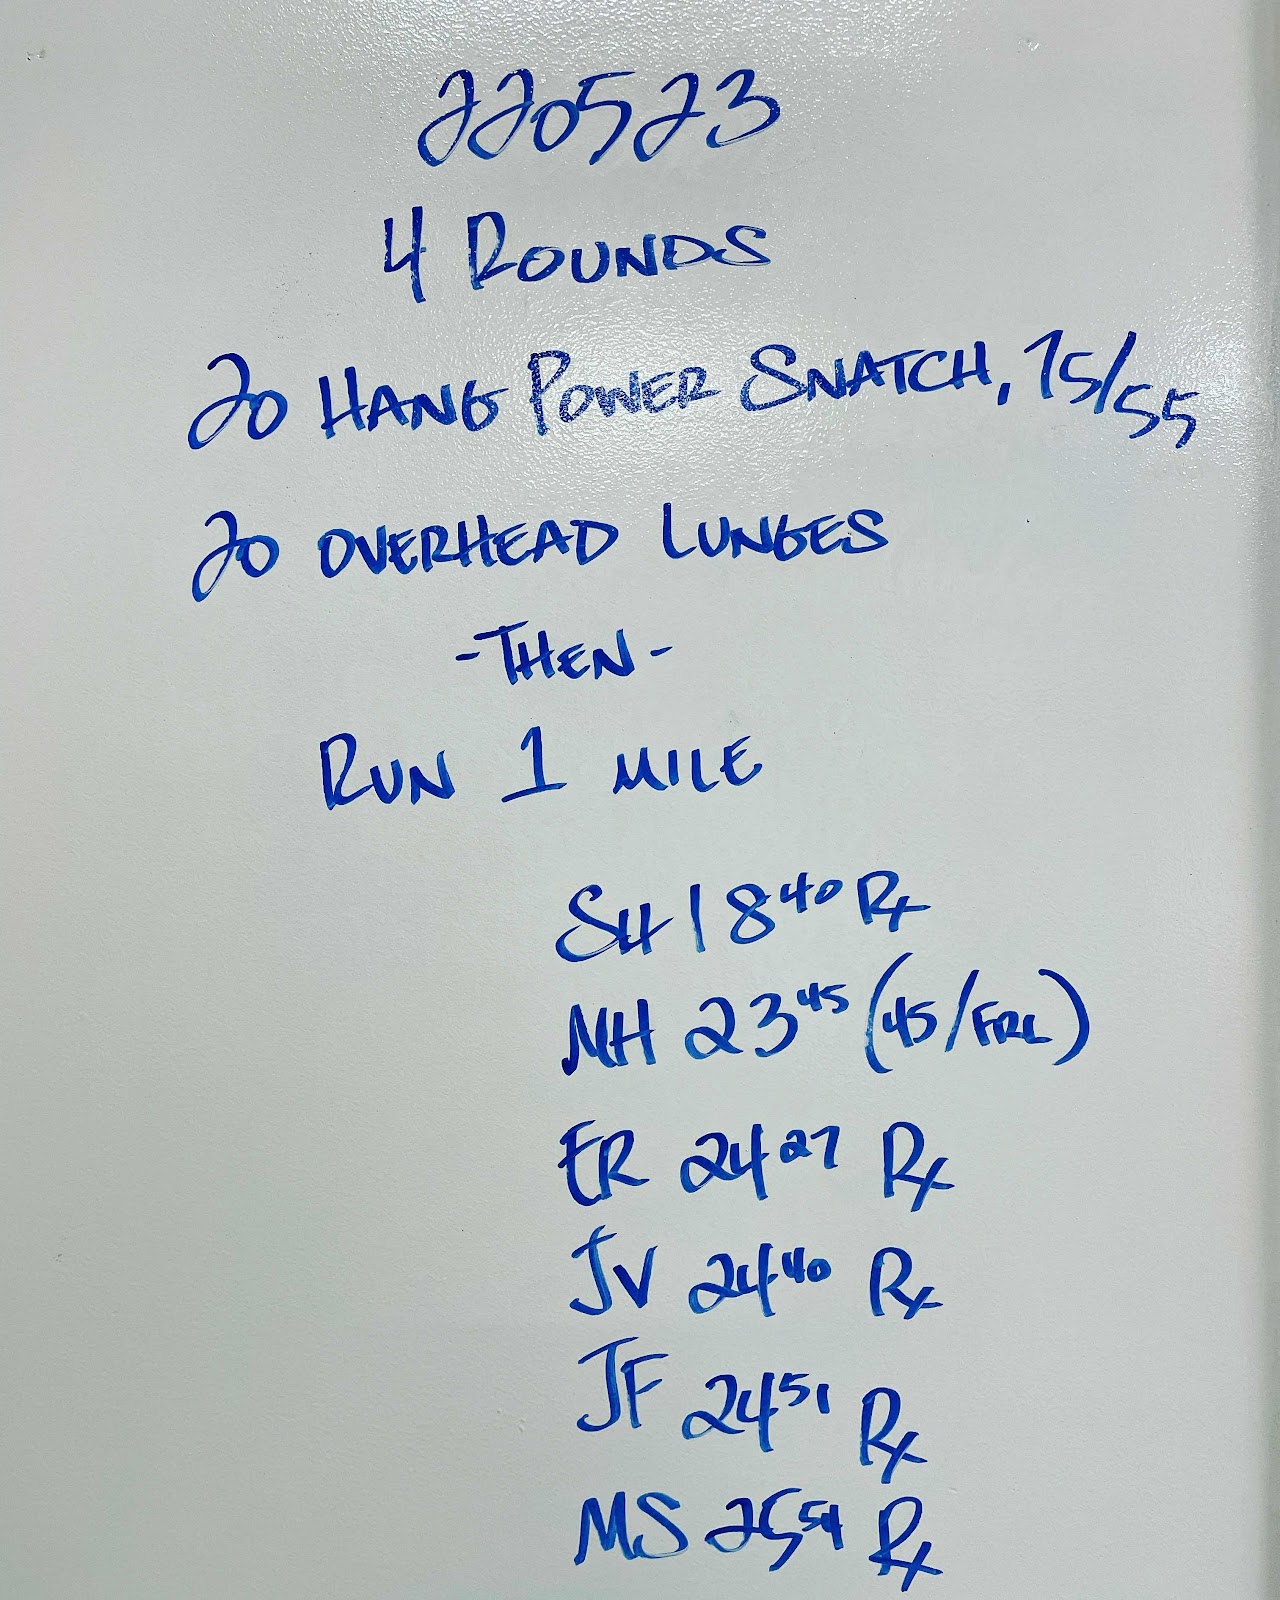 220523
4 ROUNDS
20 HANG POWER SNATCH, 75/55
20 OVERHEAD LUNGES
-THEN-
RUN 1 MILE
SH 18 40 Rx
MH 23 45 (45/FRL)
ER 24 27 Rx
JV 24 40 Rx
JF 24 51 Rx
MS 25 54 Rx